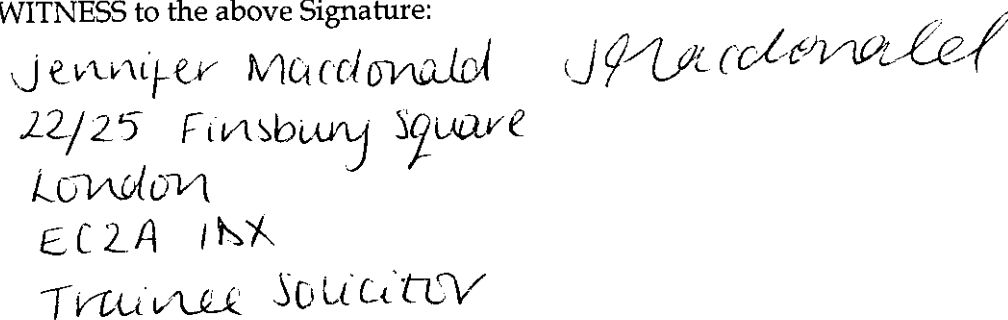 WITNESS to the above Signature:
Jennifer Macdonald JMacdonald
22/25 Finsbury Square
London
EC2A 1DX
Trainee Solicitor